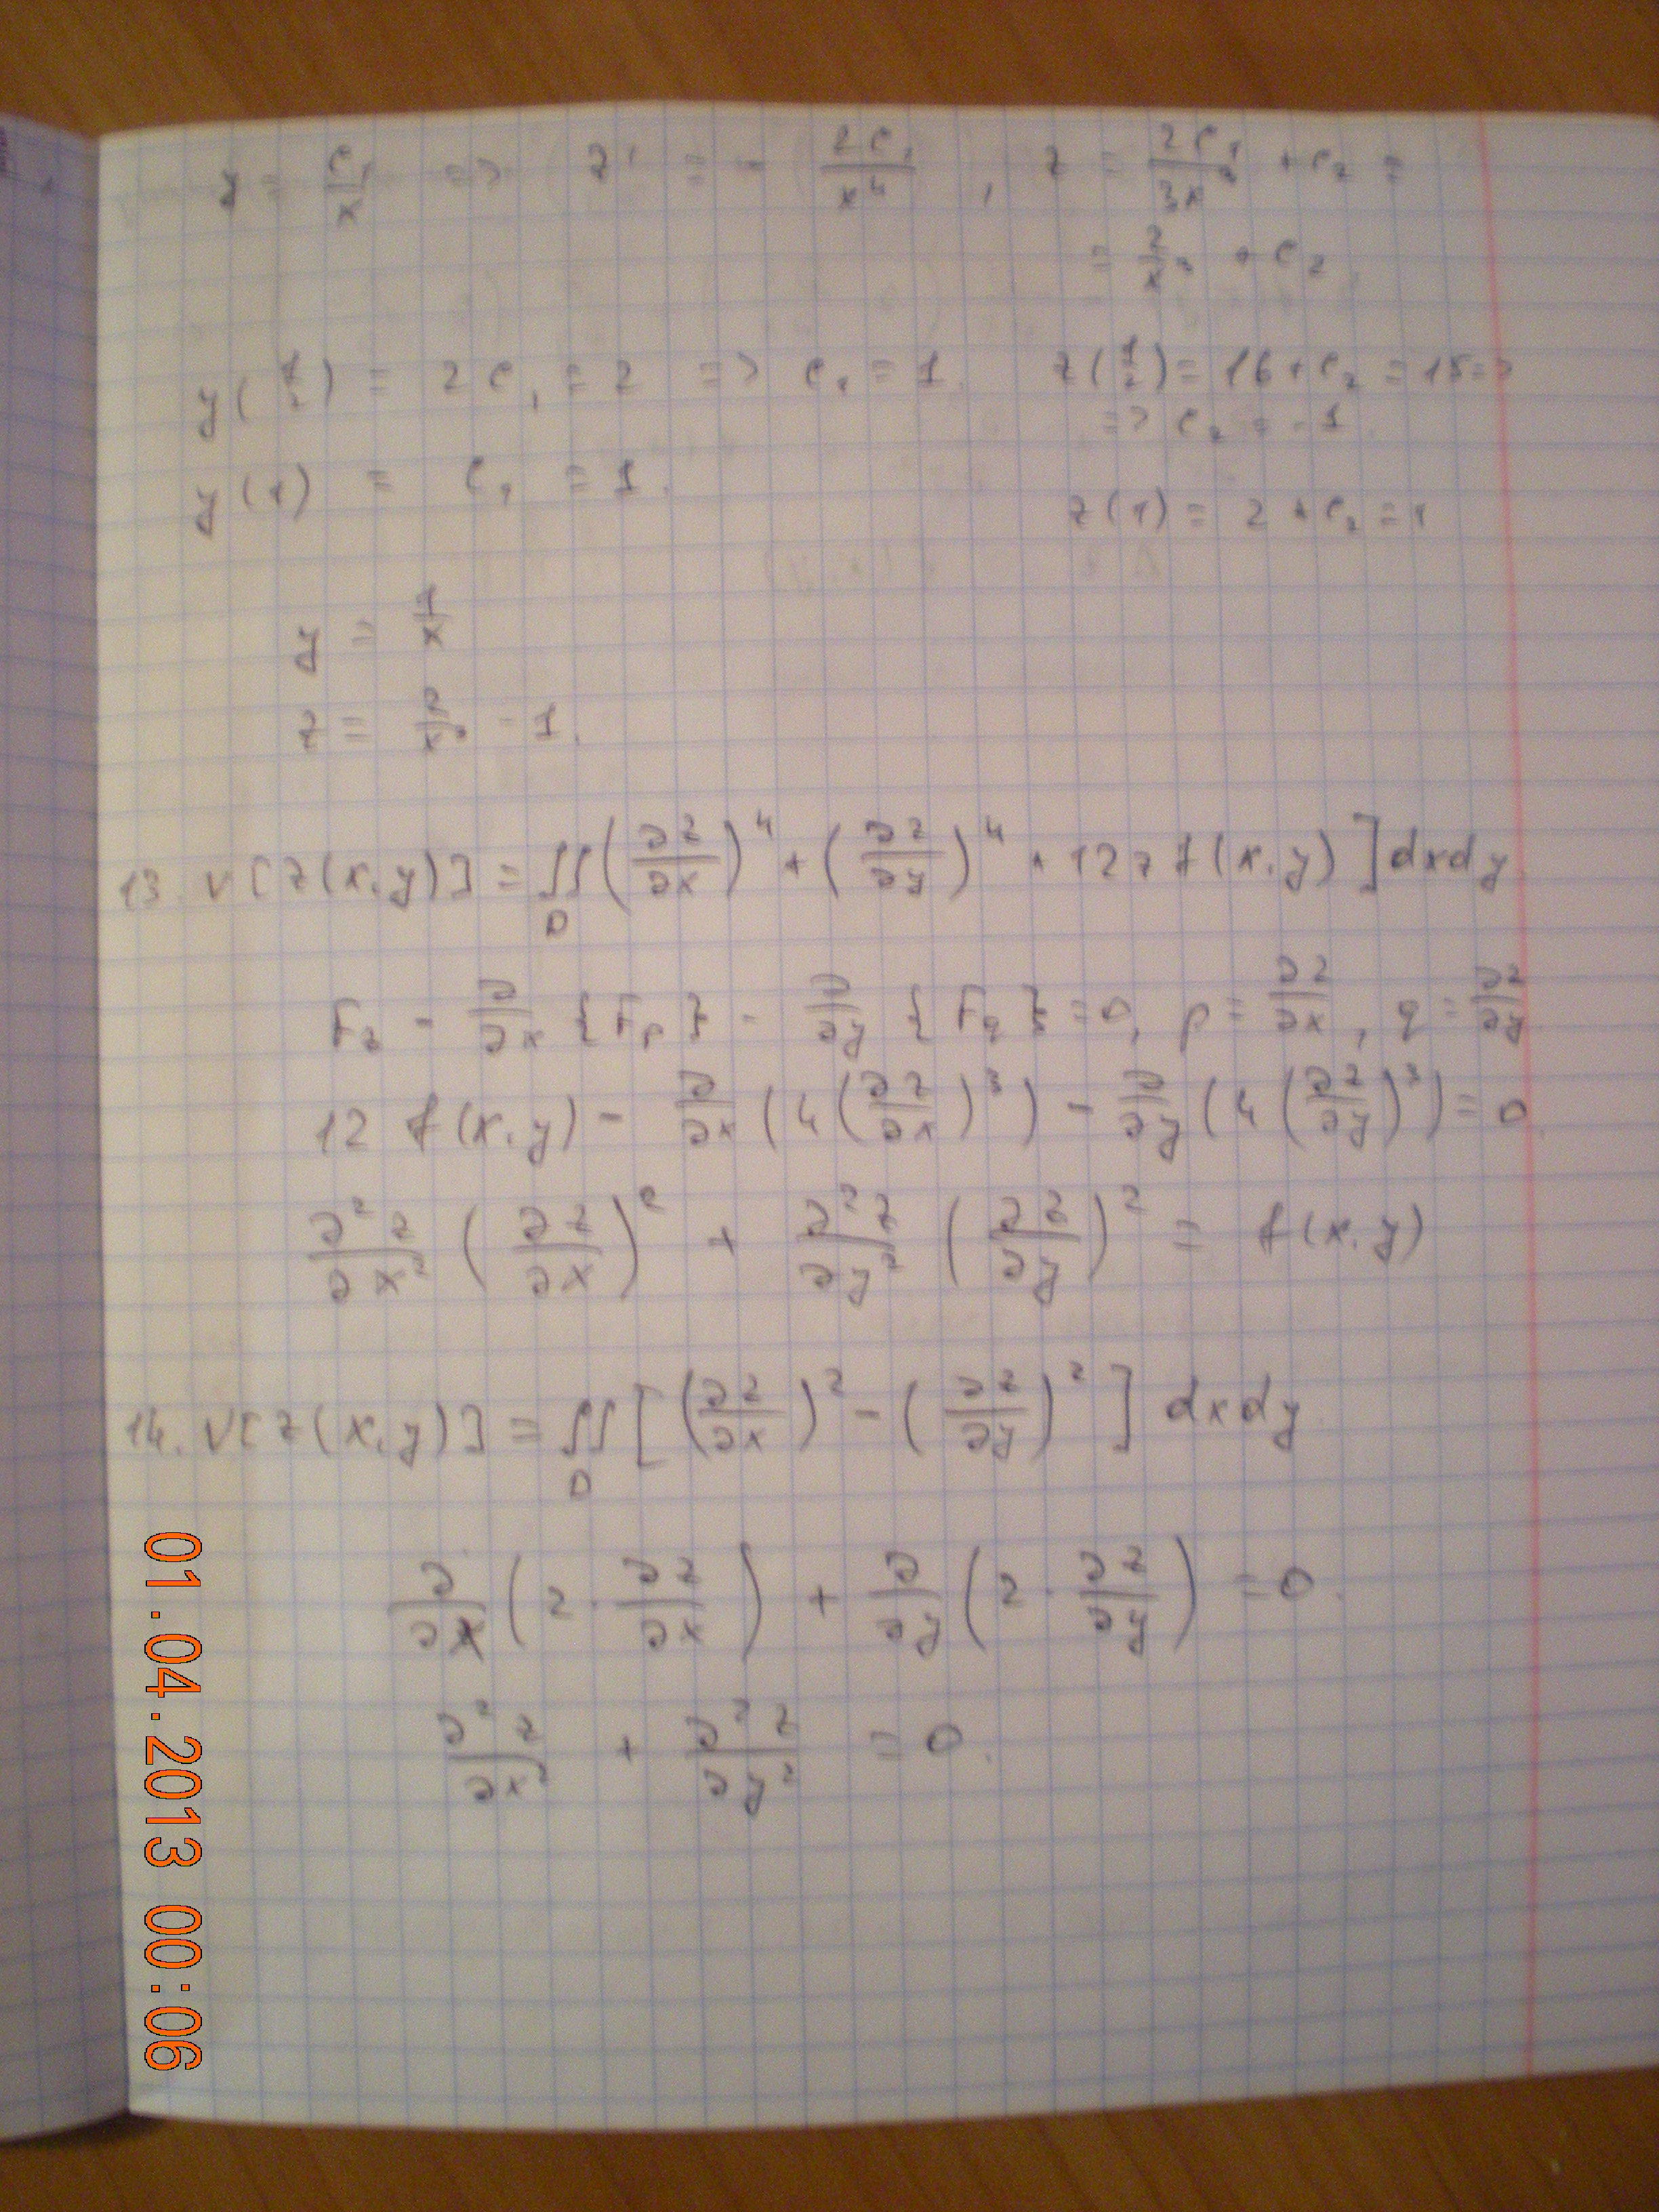 y = C₁/x => z' = - 2C₁/x⁴ , z = 2C₁/3x³ + C₂ =
= 2/x³ + C₂
y(1/2) = 2C₁ = 2 => C₁ = 1. z(1/2) = 16 + C₂ = 15 =>
=> C₂ = -1.
y(1) = C₁ = 1. z(1) = 2 + C₂ = 1
y = 1/x
z = 2/x³ - 1.
13. v[z(x,y)] = ∬_D (∂z/∂x)⁴ + (∂z/∂y)⁴ + 12 z f(x,y) ] dxdy
F_z - ∂/∂x {F_p} - ∂/∂y {F_q} = 0, p = ∂z/∂x, q = ∂z/∂y
12 f(x,y) - ∂/∂x (4(∂z/∂x)³) - ∂/∂y (4(∂z/∂y)³) = 0.
∂²z/∂x² (∂z/∂x)² + ∂²z/∂y² (∂z/∂y)² = f(x,y)
14. v[z(x,y)] = ∬_D [ (∂z/∂x)² - (∂z/∂y)² ] dxdy
∂/∂x (2 · ∂z/∂x) + ∂/∂y (2 · ∂z/∂y) = 0.
∂²z/∂x² + ∂²z/∂y² = 0.
01.04.2013 00:06